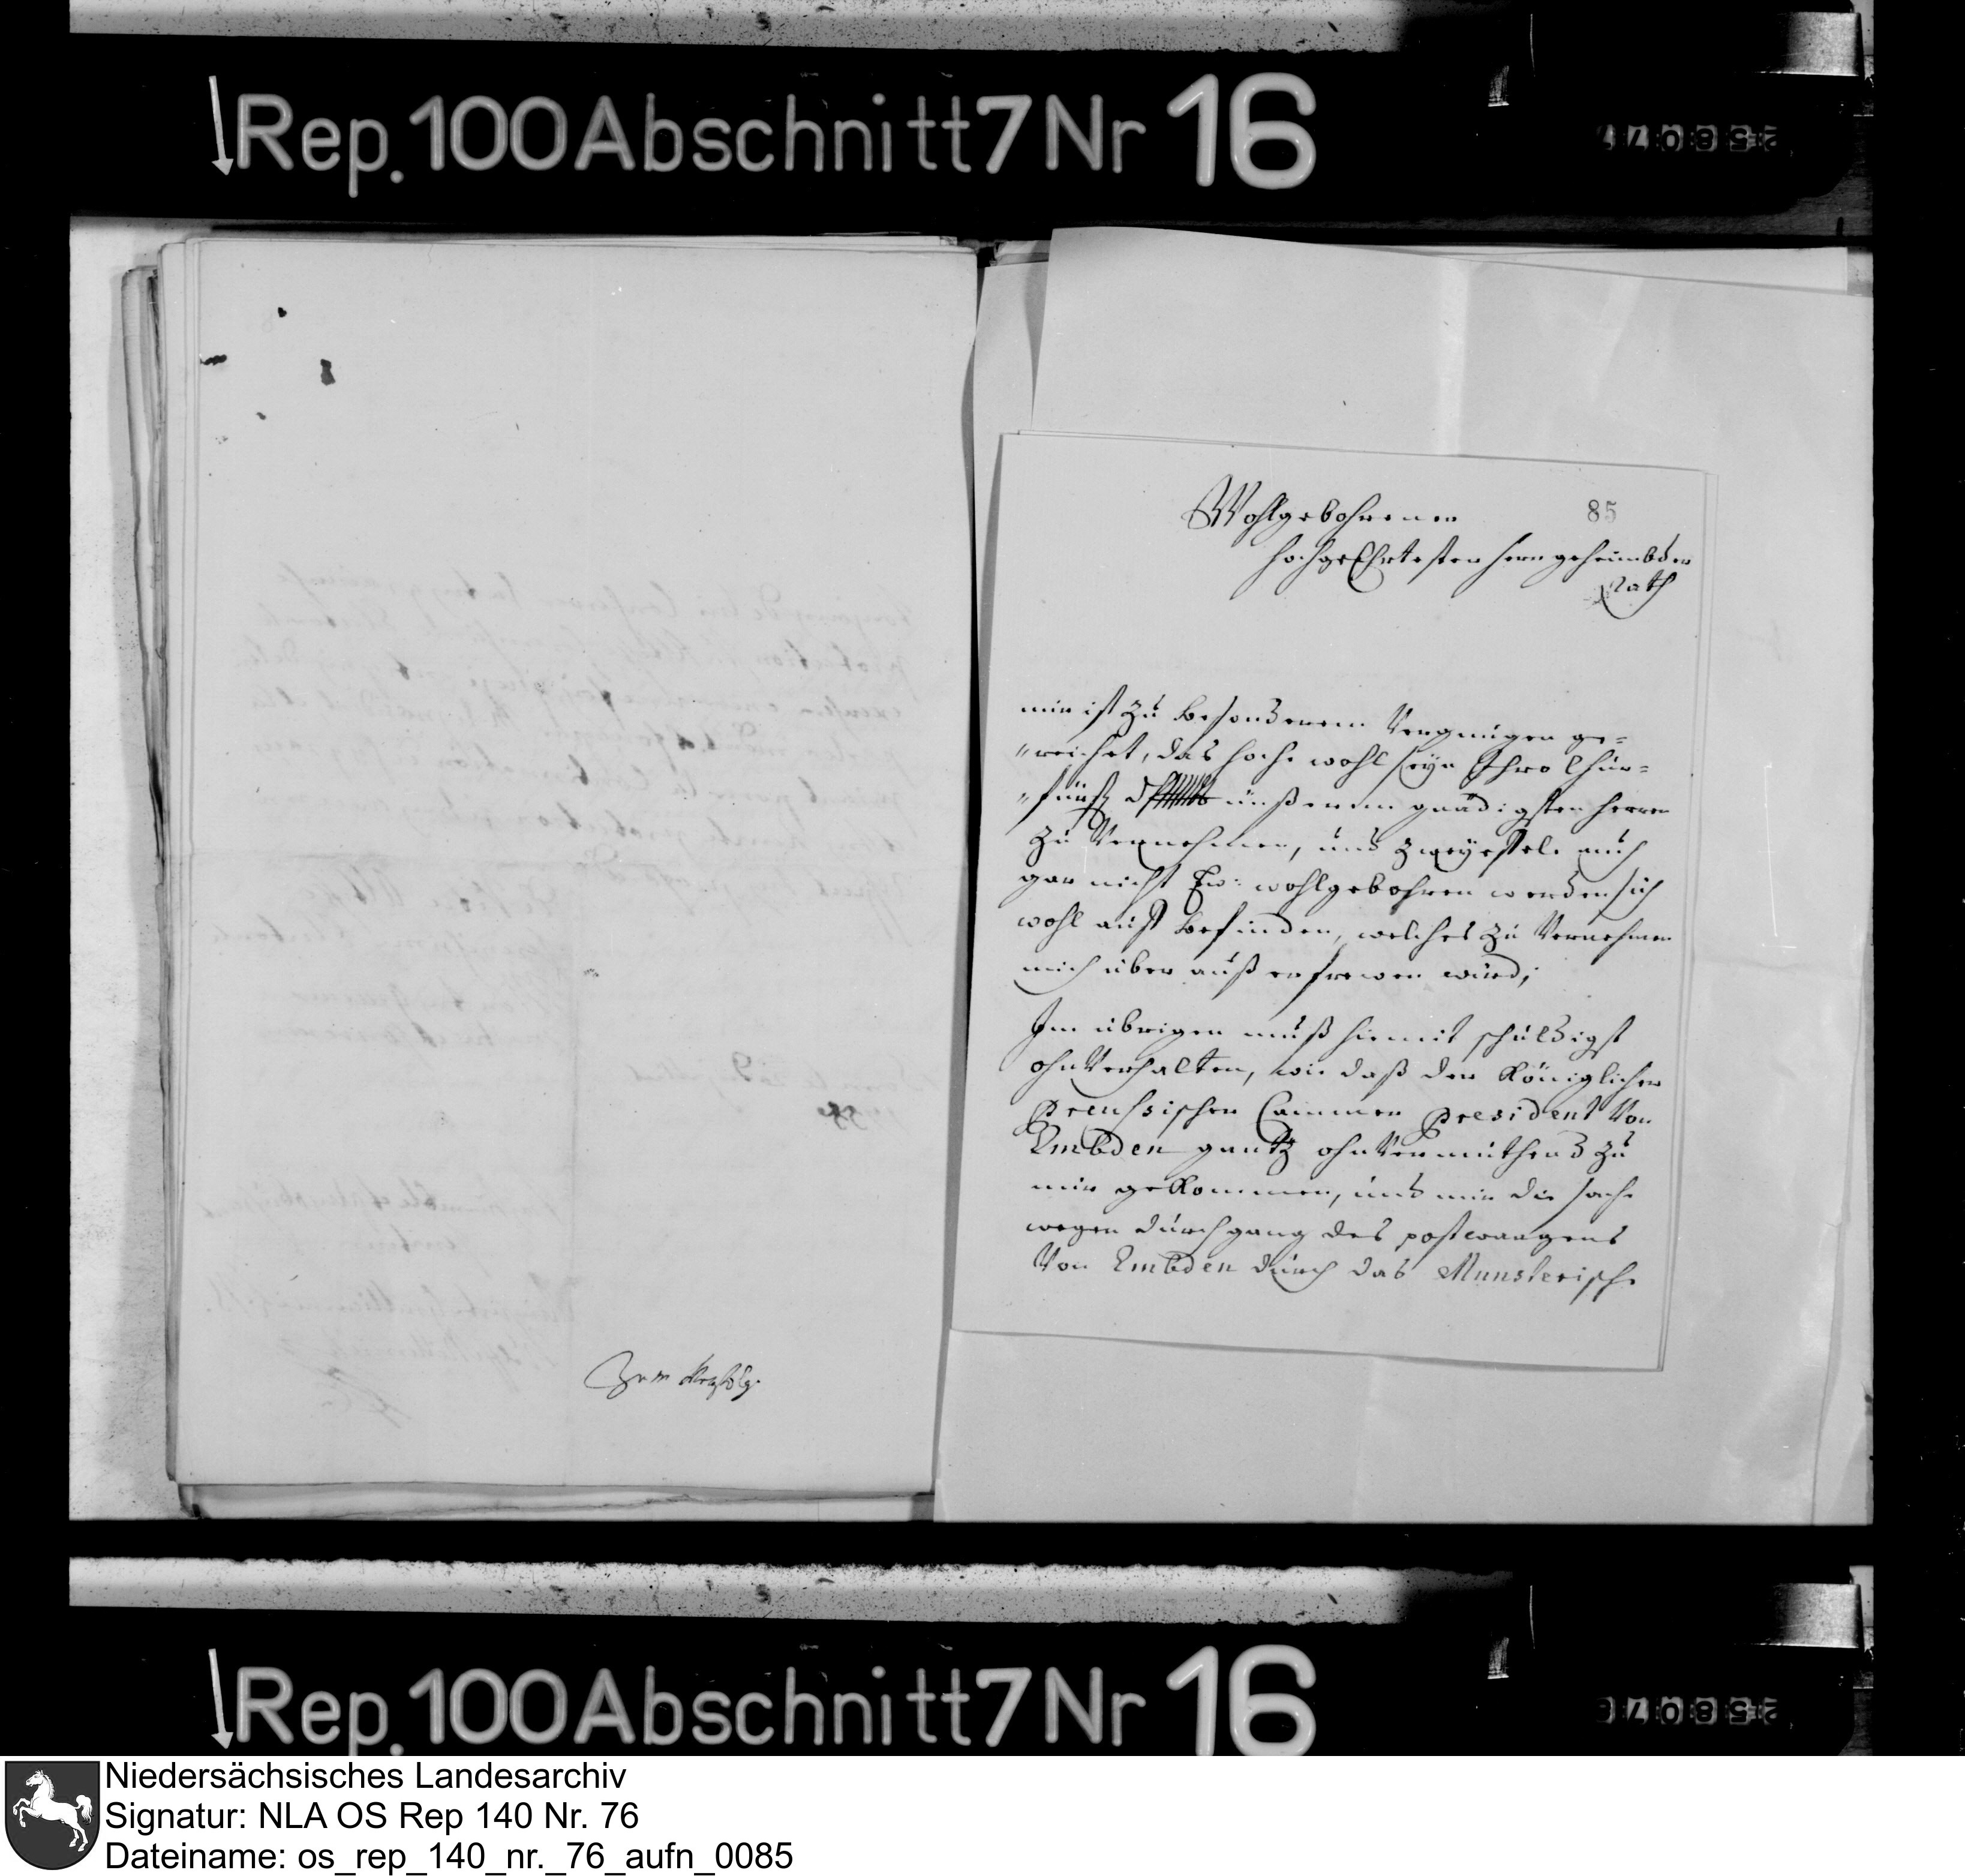 Rep. 100 Abschnitt 7 Nr 16
85
Wohlgebohrener
hochgeEhrtester herr geheimbder
Rath
mir ist zu besonderem Vergnügen ge=
"reichet, das hoche wohl seyn Ihro Chur=
"fürstl unßerem gnädigsten herren
zu Vernehmen, und zweyffele auch
gar nicht Ew: wohlgebohren werden sich
wohl auff befinden, welches zu Vernehmen
mich über auß erfrewen würd;
Im übrigen muß hiemit schuldigst
ohnVerhalten, wie daß der Königlicher
Preussischer Cammer President Von
Embden gantz ohnVermuthend zu
mir gekommen, und mir die sache
wegen durchgang des postwaagens
Von Embden durch das Munsterische
Zum
Rep. 100 Abschnitt 7 Nr 16
Niedersächsisches Landesarchiv
Signatur: NLA OS Rep 140 Nr. 76
Dateiname: os_rep_140_nr._76_aufn_0085